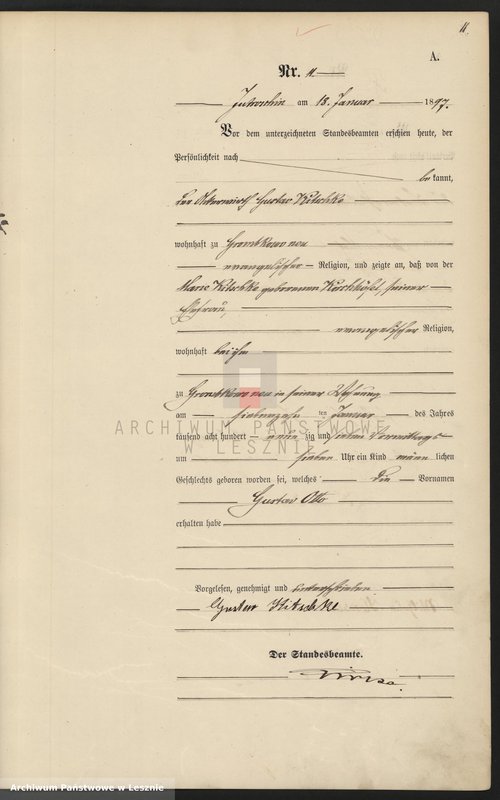 11.
A.
Nr. 11.
Jutroschin am 18. Januar 1897.
Vor dem unterzeichneten Standesbeamten erschien heute, der
Persönlichkeit nach
bekannt,
der Ackerwirth Gustav Kitschke
wohnhaft zu Grombkowo neu
evangelischer Religion, und zeigte an, daß von der
Marie Kitschke geborenen seiner
Ehefrau,
evangelischer Religion,
wohnhaft bei ihm
zu Grombkowo neu in seiner Wohnung
am siebenzehnten Januar des Jahres
ARCHIWUM PAŃSTWOWE
W LESZNIE
tausend acht hundert neunzig und sieben Vormittags
um sieben Uhr ein Kind männlichen
Geschlechts geboren worden sei, welches die Vornamen
Gustav Otto
erhalten habe
Vorgelesen, genehmigt und unterschrieben
Gustav Kitschke
Der Standesbeamte.
Archiwum Państwowe w Lesznie